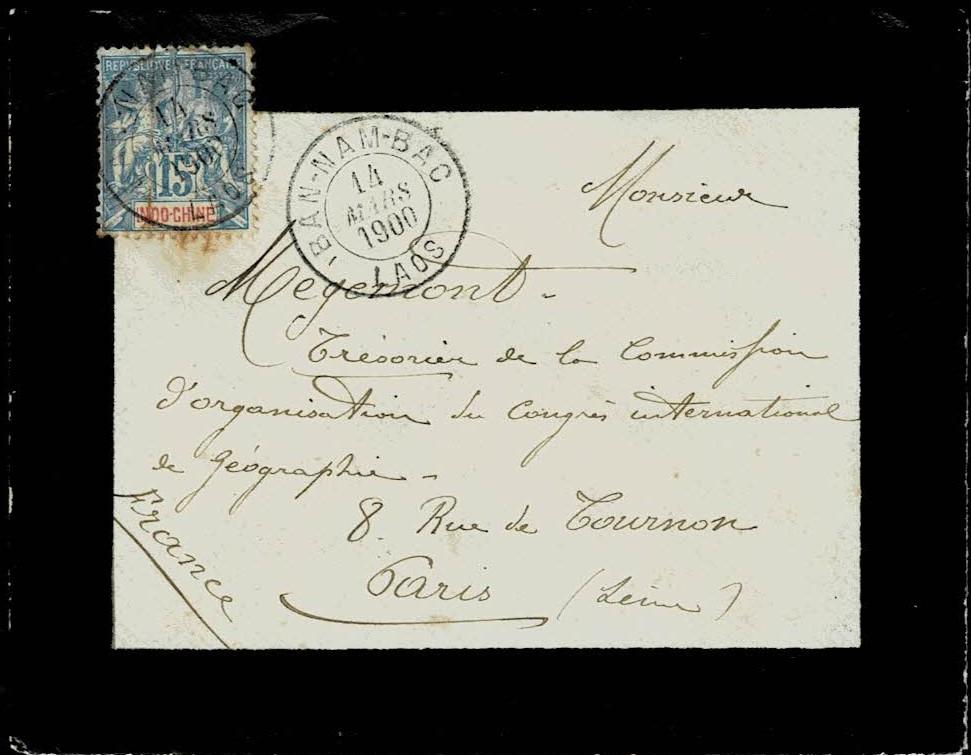 REPUBLIQUE FRANÇAISE
15
INDO-CHINE
BAN-NAM-BAC
14
MARS
1900
LAOS
BAN-NAM-BAC
14
MARS
1900
LAOS
Monsieur
Megemont -
Trésorier de la Commission
d'organisation du Congrès international
de Géographie -
8. Rue de Tournon
Paris (Seine)
France